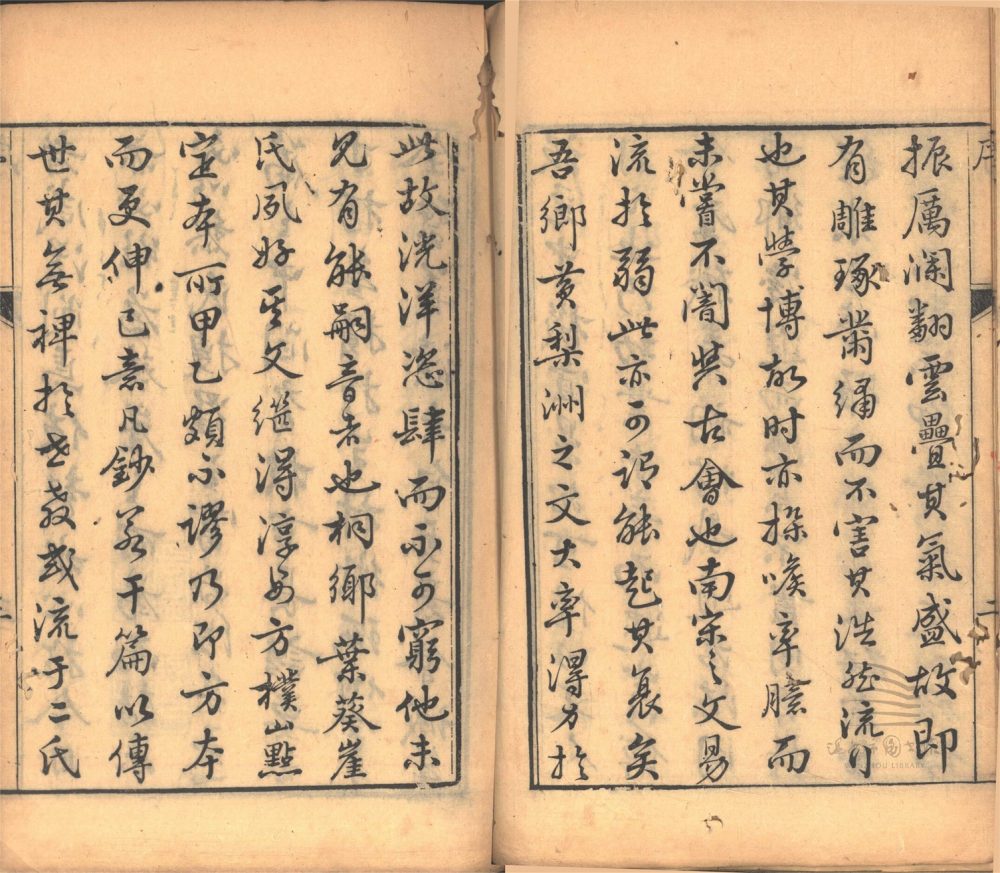 序
二
振厲瀾翻雲疊其氣盛故即
有雕琢黹繡而不害其浩然流行
也其學博故时亦操喉率臆而
未嘗不闇與古會也南宋之文易
流於弱此亦可謂能起其衰矣
吾鄉黄梨洲之文大率得力於
此故洸洋恣肆而不可窮他未
見有能嗣音者也桐鄉葉葵崖
氏夙好其文繼得淳安方樸山點
定本所甲乙頗不謬乃即方本
而更伸己意凡鈔若干篇以傳
世其無裨於世教或流于二氏